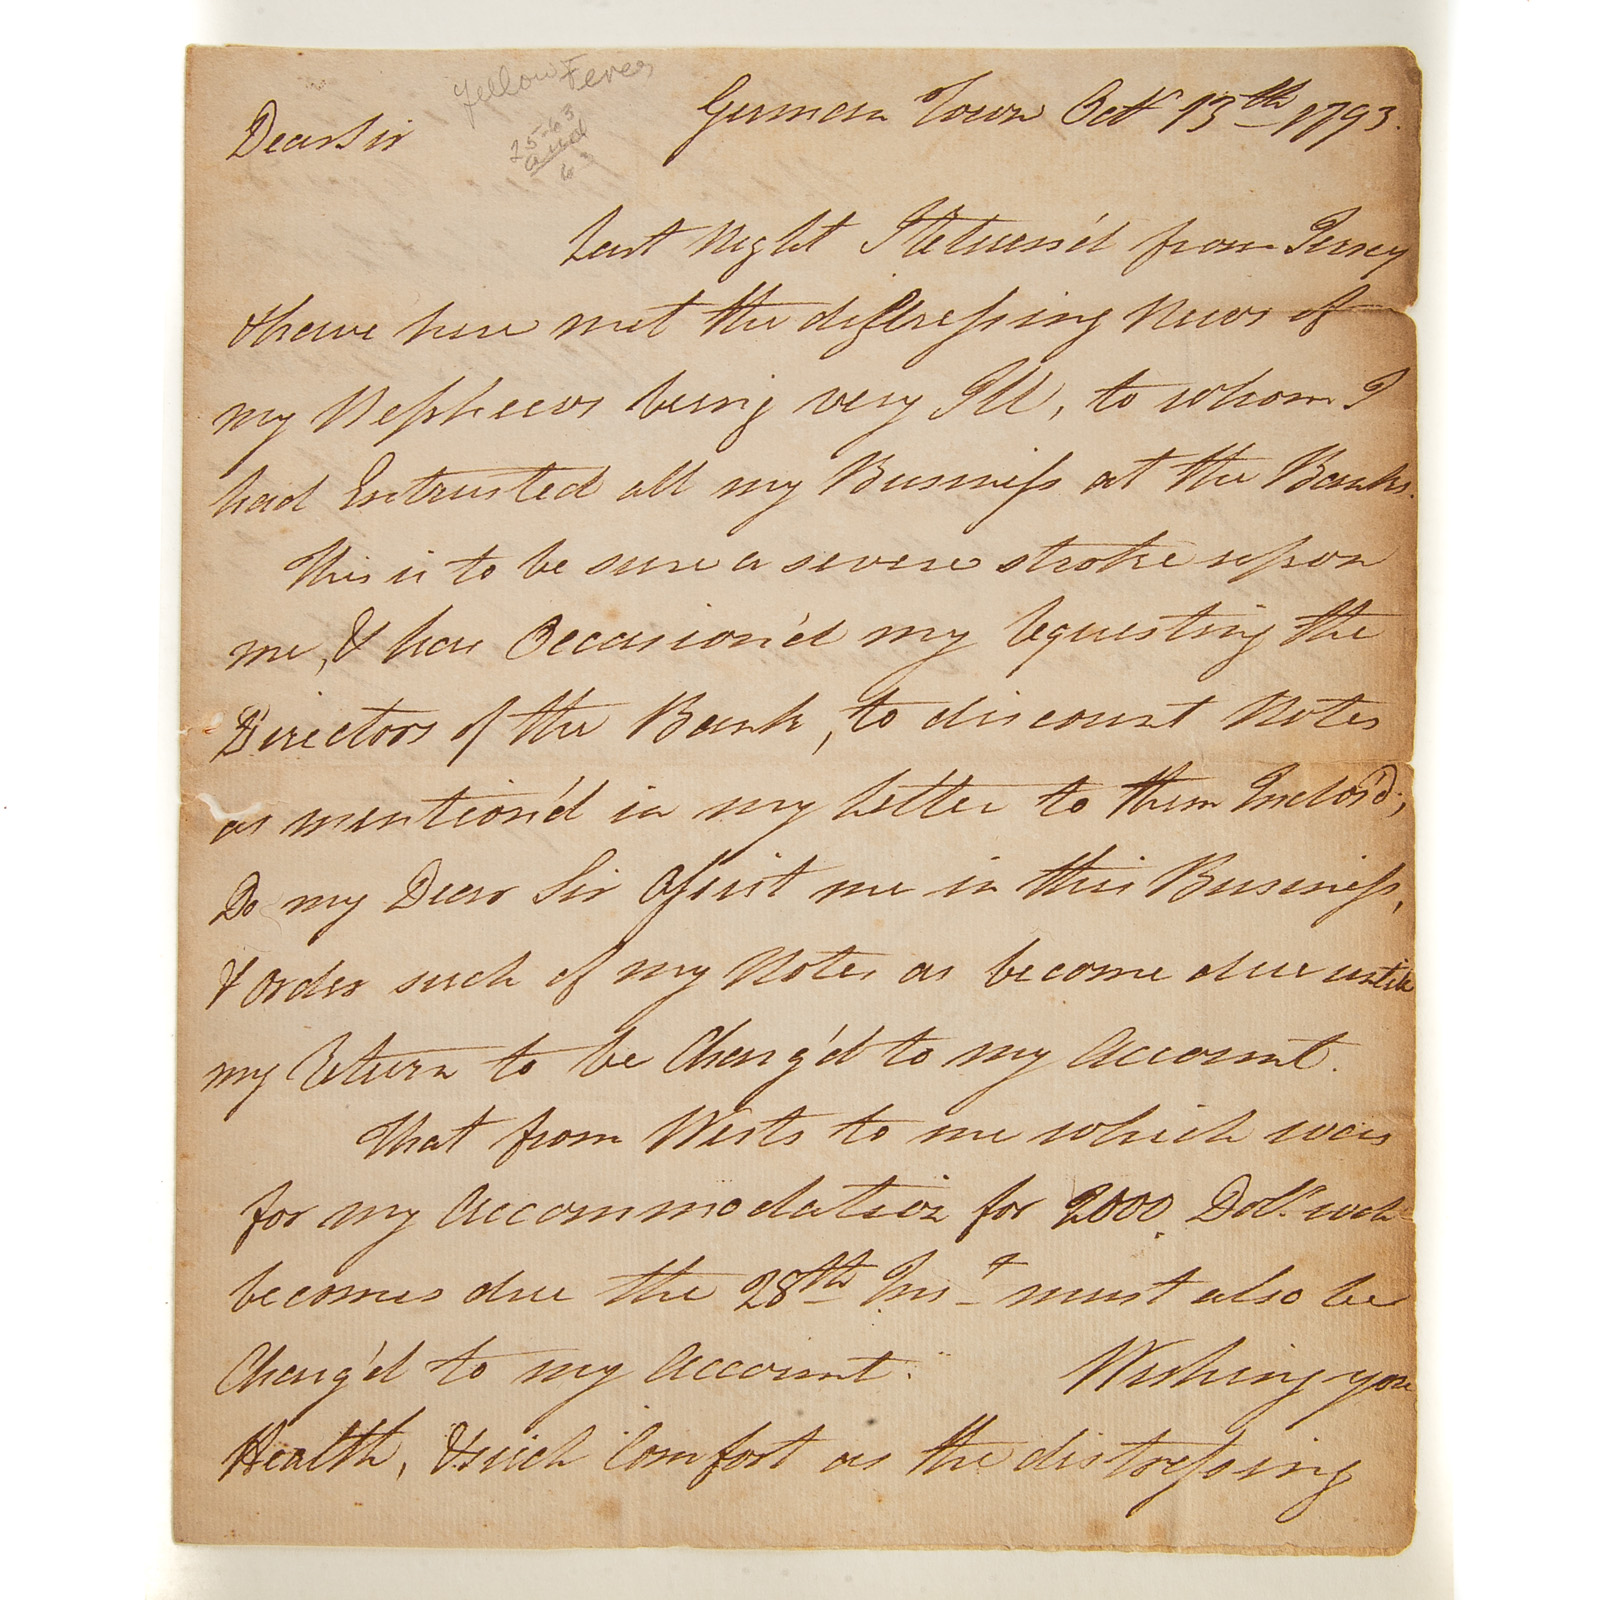 Yellow Fever
German Town Octr 13th 1793.
Dear Sir
25-63
and
Last Night I Return'd from Jersey
& have here met the distressing News of
my Nephews being very Ill, to whom I
had Entrusted all my Business at the Banks.
This is to be sure a severe stroke upon
me, & has Occasion'd my Requesting the
Directors of the Bank, to discount Notes
as mention'd in my Letter to them Inclos'd;
Do my Dear Sir Assist me in this Business,
& Order such of my Notes as become due until
my Return to be Charg'd to my Account.
That from Wests to me which was
for my Accommodation for 2000 Dolls. wch
becomes due the 28th Inst must also be
Charg'd to my Account. Wishing you
Health, & such Comfort as the distressing